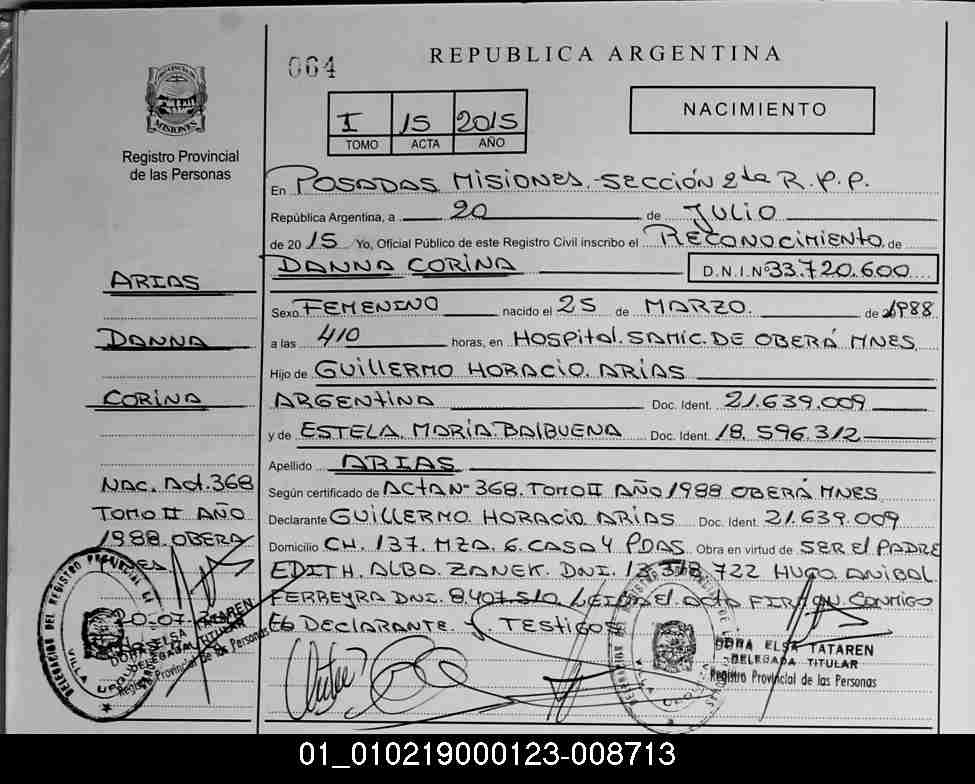 064
REPUBLICA ARGENTINA
I 15 2015
TOMO ACTA AÑO
NACIMIENTO
PROVINCIA DE
MISIONES
Registro Provincial
de las Personas
En POSADAS MISIONES.-SECCIÓN 2da R.P.P.
República Argentina, a 20 de JULIO
de 2015 Yo, Oficial Público de este Registro Civil inscribo el RECONOCIMIENTO de
DANNA CORINA D.N.I.Nº33.720.600
Sexo FEMENINO nacido el 25 de MARZO de 1988
a las 410 horas, en HOSPITAL.SAMIC.DE OBERÁ MNES
Hijo de GUILLERMO HORACIO ARIAS
ARGENTINA Doc. Ident. 21.639.009
y de ESTELA MARÍA BALBUENA Doc. Ident. 18.596.312
Apellido ARIAS
Según certificado de ACTA Nº 368. TOMO II AÑO 1988 OBERÁ MNES
Declarante GUILLERMO HORACIO ARIAS Doc. Ident. 21.639.009
Domicilio CH. 137. MZA. 6. CASA 4 PDAS. Obra en virtud de SER El PADRE
EDITH. ALBA. ZANEK. DNI. 722 HUGO ANIBAL
FERREYRA DNI. 8.407.510 LEIDA El ACTA FIRMAN CONMIGO
El DECLARANTE y TESTIGOS
ARIAS
DANNA
CORINA
NAC. Act.368
TOMO II AÑO
1988 OBERA
20-07-
DORA ELSA TATAREN
DELEGADA TITULAR
Registro Provincial de las Personas
DELEGACION DEL REGISTRO PROVINCIAL DE LAS
VILLA URQUIZA
DORA ELSA TATAREN
DELEGADA TITULAR
Registro Provincial de las Personas
01_010219000123-008713